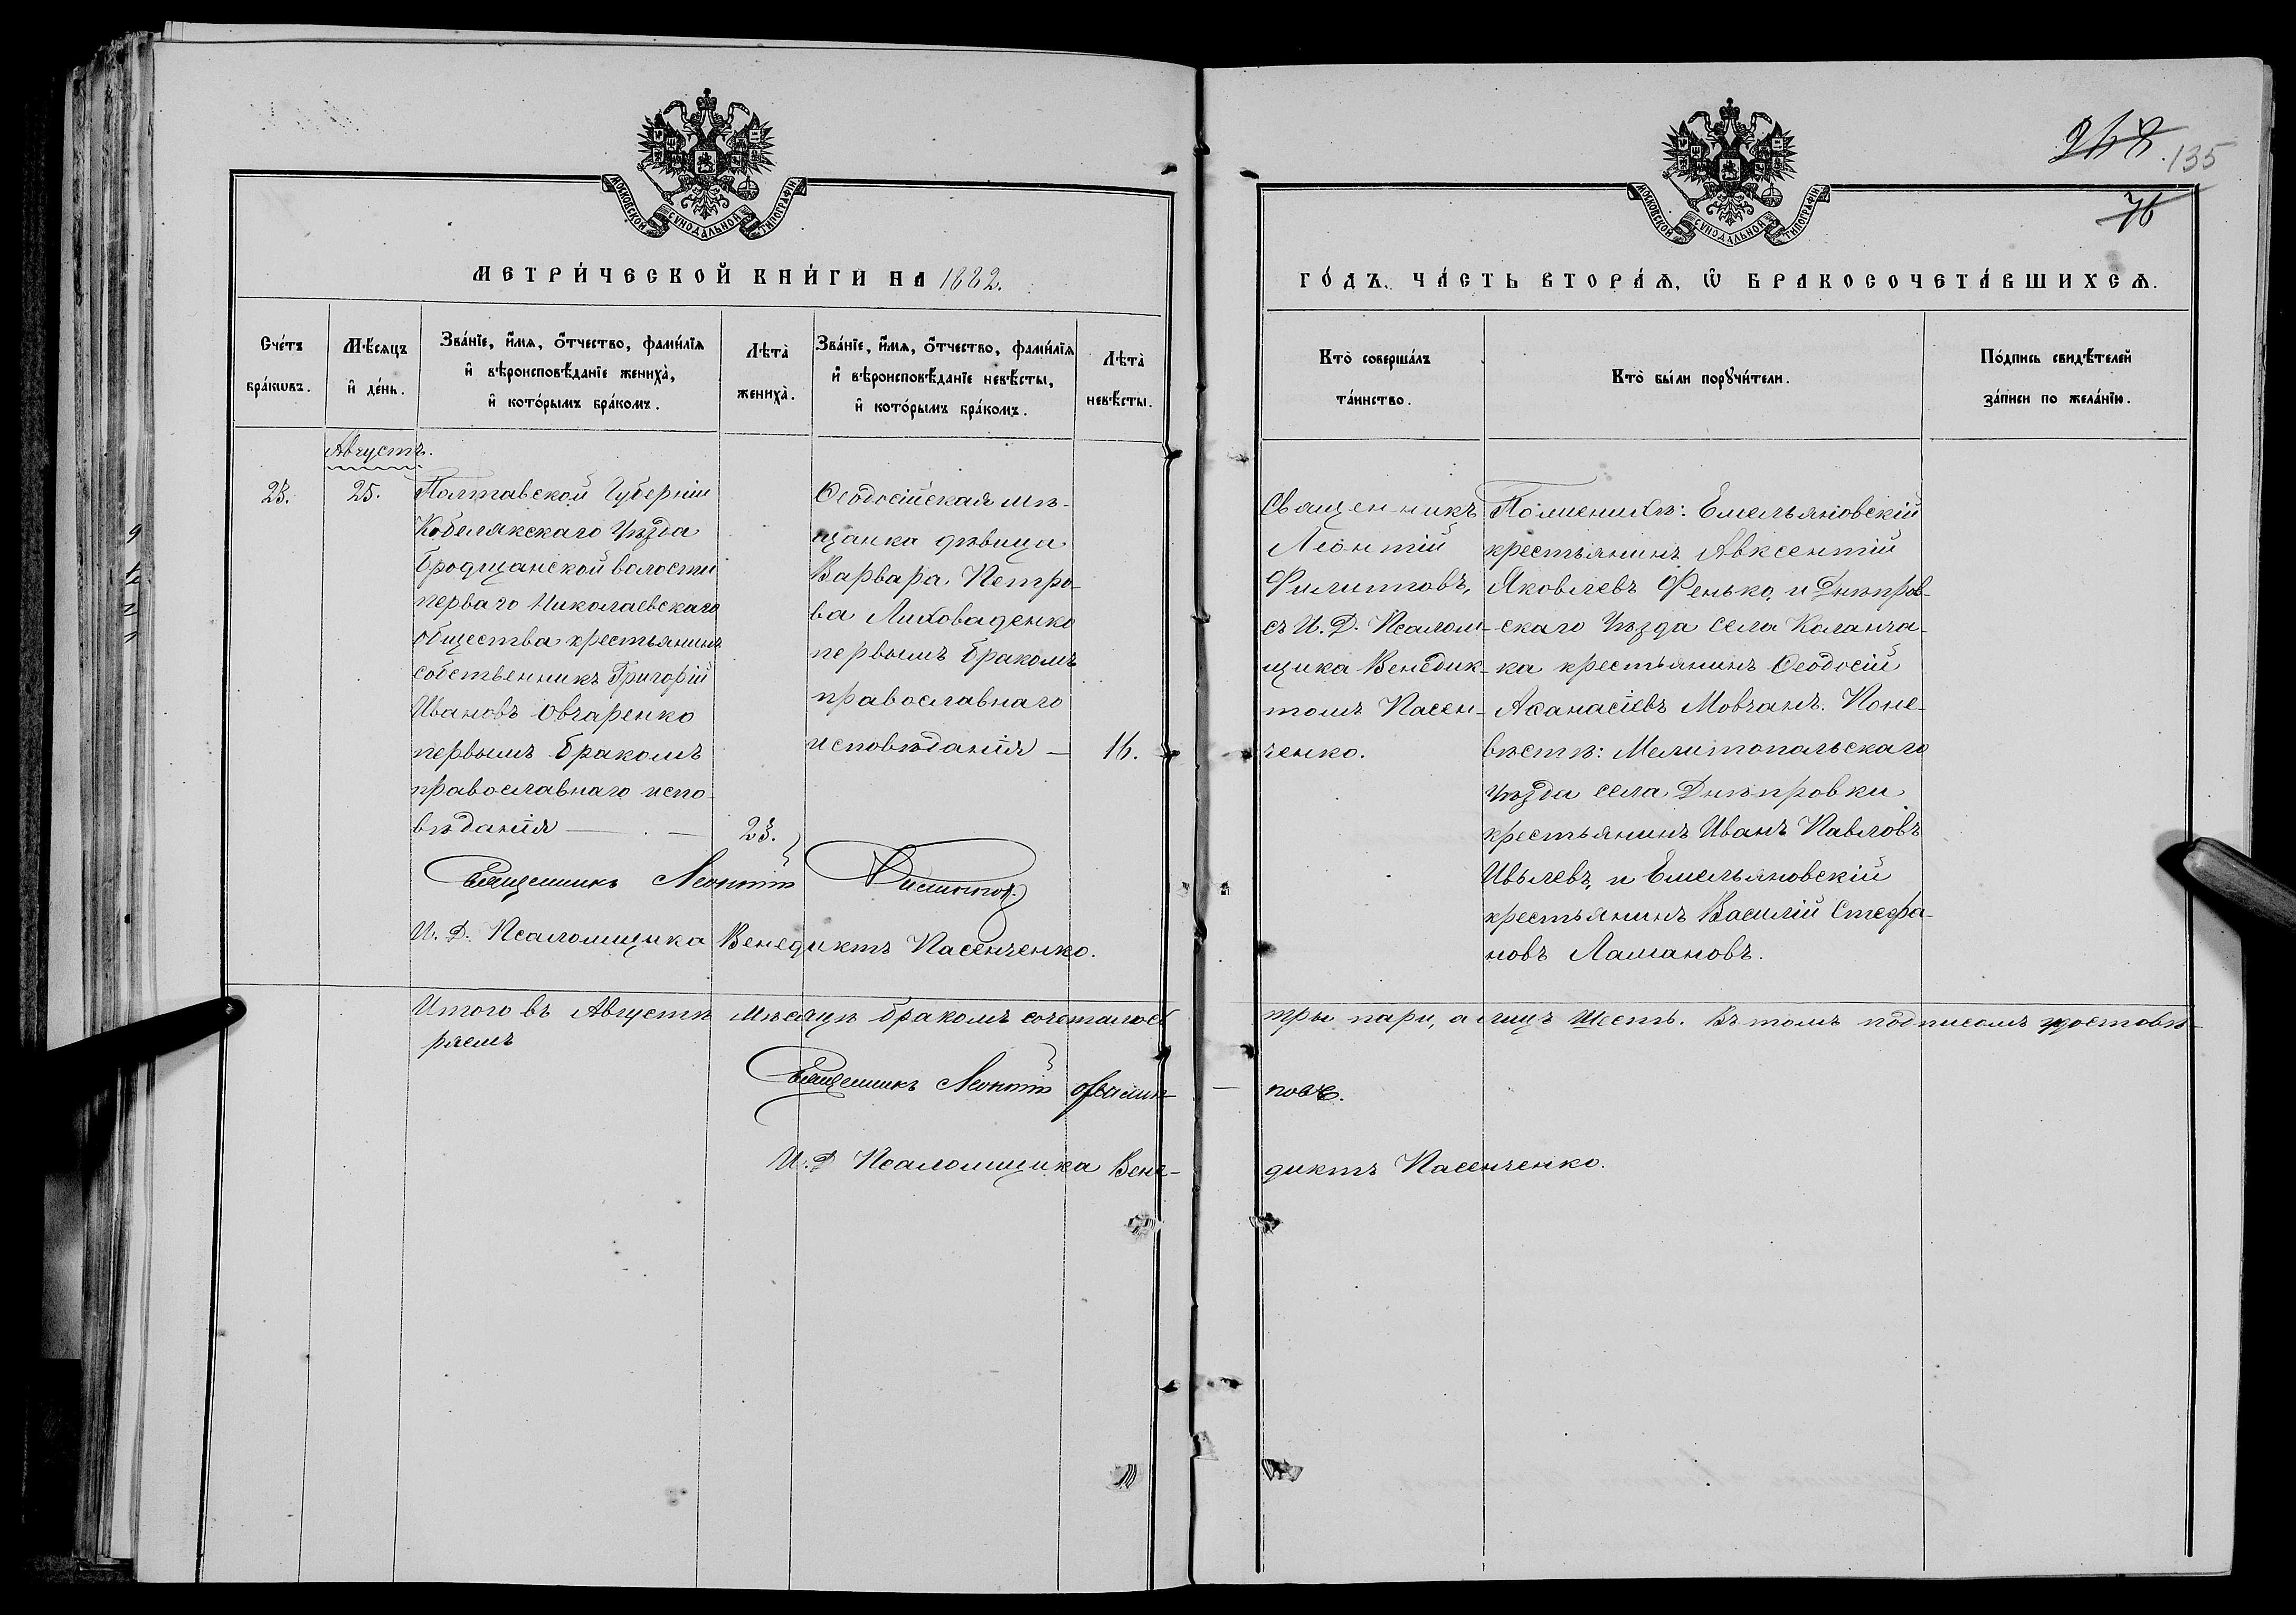 268
135
76
МОСКОВСКОЙ СѴНОДАЛЬНОЙ ТИПОГРАФІИ
МОСКОВСКОЙ СѴНОДАЛЬНОЙ ТИПОГРАФІИ
МЕТРИ́ЧЕСКОЙ КНИ́ГИ НА 1882.
ГО́ДЪ. ЧА́СТЬ ВТОРА́Ѧ, Ѽ БРАКОСОЧЕТА́ВШИХСѦ.
Сче́тъ
бра́кѡвъ.
Мѣ́сяцъ
и҆ де́нь.
Зва́нїе, и҆́мѧ, о҆́тчество, фами́лїѧ
и҆ вѣроисповѣ́данїе жениха̀,
и҆ кото́рымъ бра́комъ.
Лѣта̀
жениха̀.
Зва́нїе, и҆́мѧ, о҆́тчество, фами́лїѧ
и҆ вѣроисповѣ́данїе невѣ́сты,
и҆ кото́рымъ бра́комъ.
Лѣта̀
невѣ́сты.
Кто̀ соверша́лъ
та́инство.
Кто̀ бы́ли порꙋчи́тели.
По́дпись свидѣ́телей
за́писи по жела́нїю.
Августъ.
23.
25.
Полтавской Губерніи
Кобелякскаго Уѣзда
Бродщанской волости
перваго Николаевскаго
общества крестьянинъ
собственникъ Григорій
Ивановъ Овчаренко
первымъ бракомъ
православнаго испо-
вѣданія
23.
Ѳеодосійская мѣ-
щанка дѣвица
Варвара Петро-
ва Лиховаденко
первымъ бракомъ
православнаго
исповѣданія —
16.
Священникъ
Леонтій
Филиповъ,
съ И. Д. Псалом-
щика Венедик-
томъ Пасен-
ченко.
По женихѣ: Емельяновскій
крестьянинъ Авксентій
Яковлевъ Фенько, и Днѣпров-
скаго Уѣзда села Каланча-
ка крестьянинъ Ѳеодосій
Аѳанасіевъ Мовчанъ. По не-
вѣстѣ: Мелитопольскаго
Уѣзда села Днѣпровки
крестьянинъ Иванъ Павловъ
Ивлевъ, и Емельяновскій
крестьянинъ Василій Стефа-
новъ Ламановъ.
Священникъ Леонтій Филиповъ
И. Д. Псаломщика Венедиктъ Пасенченко.
Итого въ Августѣ мѣсяцѣ бракомъ сочеталось три пари, а лицъ шесть. Въ томъ подписомъ удостовѣ-
ряемъ
Священникъ Леонтій Филип-повъ.
И. Д. Псаломщика Вене-диктъ Пасенченко.